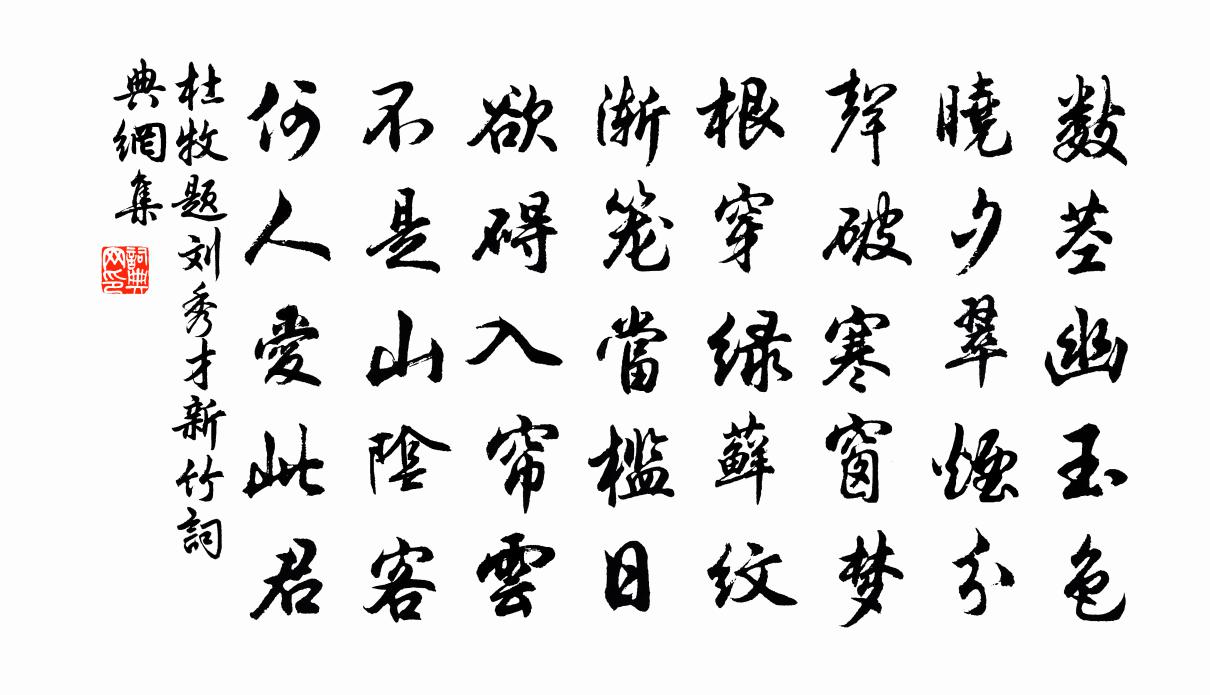 数茎幽玉色
曉夕翠煙分
聲破寒窗梦
根穿绿蘚纹
渐笼當槛日
欲碍入帘雲
不是山陰客
何人愛此君
杜牧题刘秀才新竹詞
典網集
詞典网印